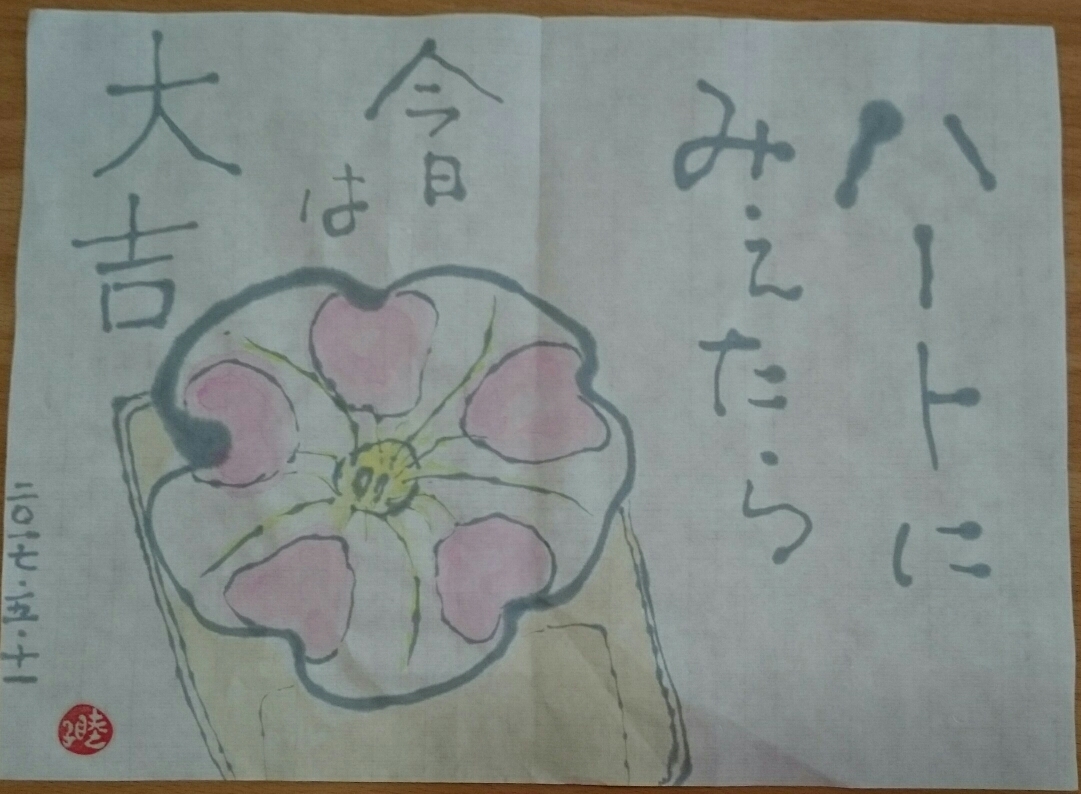 ハートに
みえたら
今日
は
大吉
二〇一七・五・十